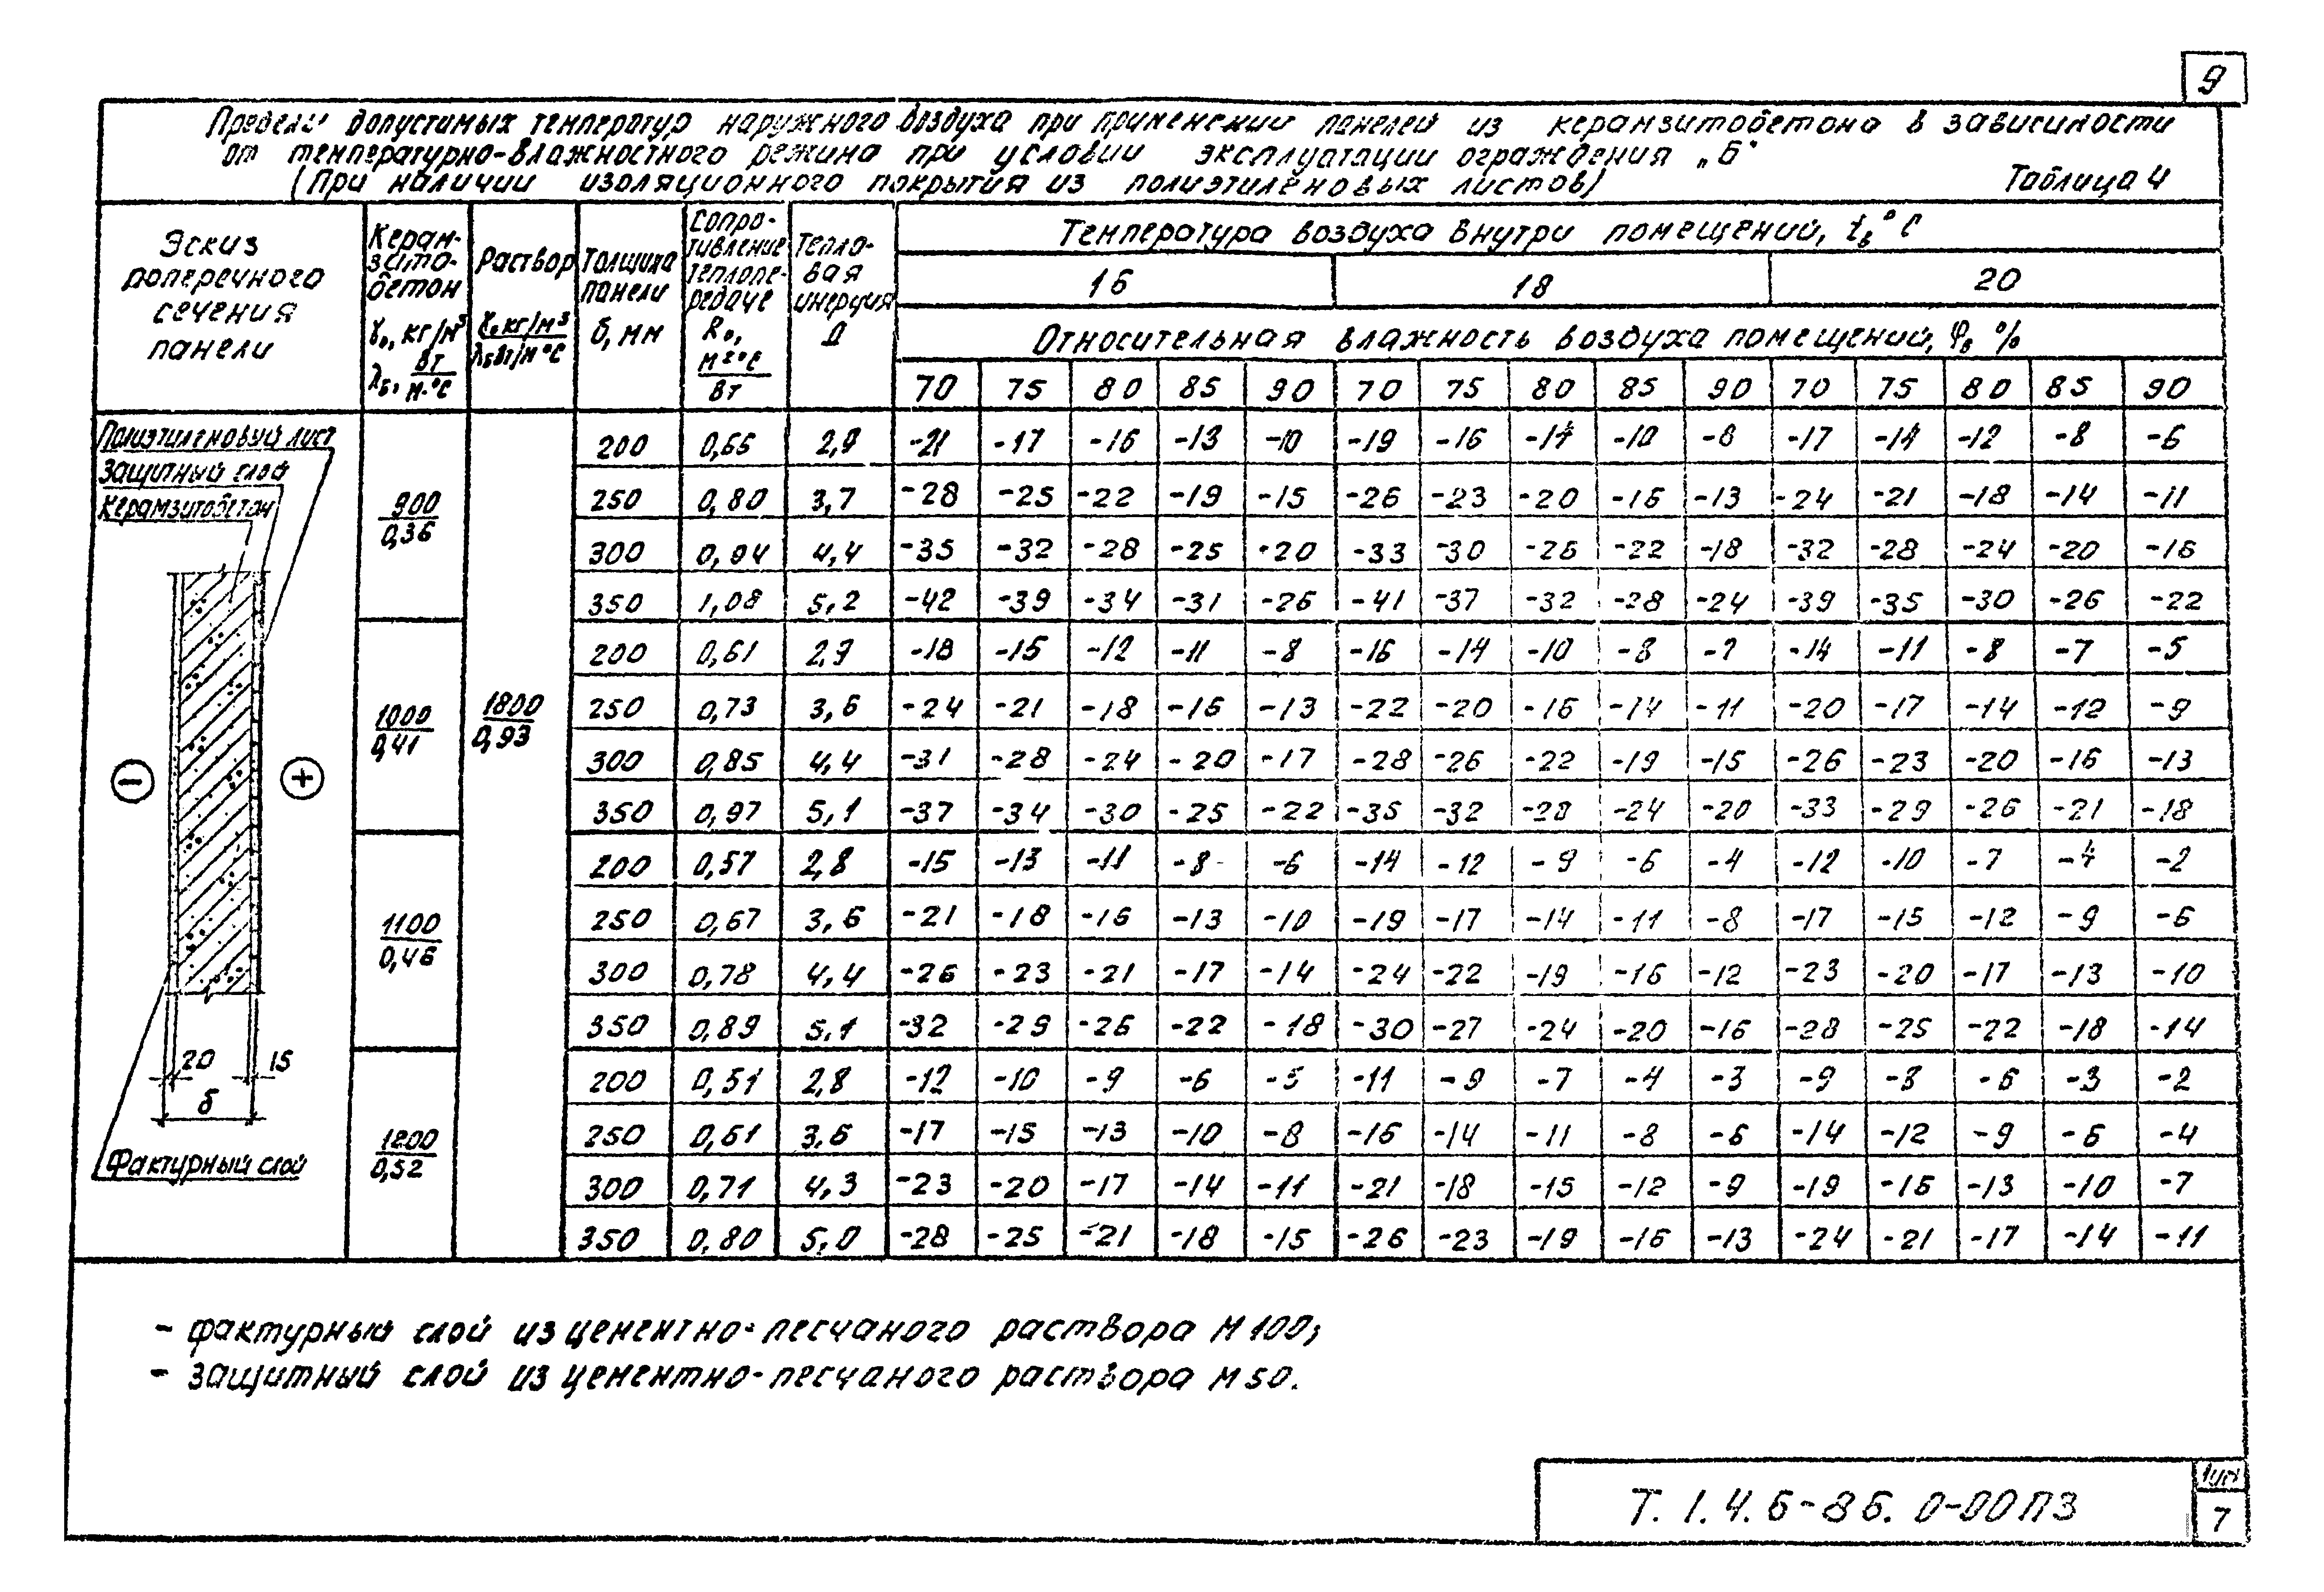 9
Пределы допустимых температур наружного воздуха при применении панелей из керамзитобетона в зависимости
от температурно-влажностного режима при условии эксплуатации ограждения „Б"
(При наличии изоляционного покрытия из полиэтиленовых листов) Таблица 4
Эскиз поперечного сечения панели
Керамзито-бетон γ₀, кг/м³ λБ, Вт/м·°С
Раствор γ₀ кг/м³ / λБ Вт/м°С
Толщина панели б, мм
Сопро-тивление теплопе-редаче R₀, м²°С/Вт
Тепло-вая инерция Д
Температура воздуха внутри помещений, tв°С
16 18 20
Относительная влажность воздуха помещений, φв %
70 75 80 85 90 70 75 80 85 90 70 75 80 85 90
Полиэтиленовый лист
Защитный слой
Керамзитобетон
900/0,36
1800/0,93
200 0,66 2,9 -21 -17 -16 -13 -10 -19 -16 -14 -10 -8 -17 -14 -12 -8 -6
250 0,80 3,7 -28 -25 -22 -19 -15 -26 -23 -20 -16 -13 -24 -21 -18 -14 -11
300 0,94 4,4 -35 -32 -28 -25 -20 -33 -30 -26 -22 -18 -32 -28 -24 -20 -16
350 1,08 5,2 -42 -39 -34 -31 -26 -41 -37 -32 -28 -24 -39 -35 -30 -26 -22
1000/0,41
200 0,61 2,9 -18 -15 -12 -11 -8 -16 -14 -10 -8 -7 -14 -11 -8 -7 -5
250 0,73 3,6 -24 -21 -18 -16 -13 -22 -20 -16 -14 -11 -20 -17 -14 -12 -9
300 0,85 4,4 -31 -28 -24 -20 -17 -28 -26 -22 -19 -15 -26 -23 -20 -16 -13
350 0,97 5,1 -37 -34 -30 -25 -22 -35 -32 -28 -24 -20 -33 -29 -26 -21 -18
1100/0,46
200 0,57 2,8 -15 -13 -11 -8 -6 -14 -12 -9 -6 -4 -12 -10 -7 -4 -2
250 0,67 3,6 -21 -18 -16 -13 -10 -19 -17 -14 -11 -8 -17 -15 -12 -9 -6
300 0,78 4,4 -26 -23 -21 -17 -14 -24 -22 -19 -16 -12 -23 -20 -17 -13 -10
350 0,89 5,1 -32 -29 -26 -22 -18 -30 -27 -24 -20 -16 -28 -25 -22 -18 -14
1200/0,52
200 0,51 2,8 -12 -10 -9 -6 -5 -11 -9 -7 -4 -3 -9 -8 -6 -3 -2
250 0,61 3,6 -17 -15 -13 -10 -8 -16 -14 -11 -8 -6 -14 -12 -9 -6 -4
300 0,71 4,3 -23 -20 -17 -14 -11 -21 -18 -15 -12 -9 -19 -16 -13 -10 -7
350 0,80 5,0 -28 -25 -21 -18 -15 -26 -23 -19 -16 -13 -24 -21 -17 -14 -11
− +
20 15
б
Фактурный слой
- фактурный слой из цементно-песчаного раствора М100;
- защитный слой из цементно-песчаного раствора М50.
Т. 1.4.6-86. 0-00ПЗ
Лист
7